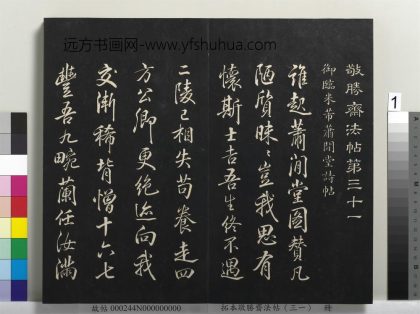 远方书画网-www.yfshuhua.com
敬勝齋法帖第三十一
御臨米芾蕭閒堂詩帖
誰起蕭閒堂圖贊凡
陋質昧〻豈我思有
懷斯士吉吾生終不遇
二陵已相失苟養走四
方公卿更絶迹向我
交漸稀背憎十六七
豐吾九畹蘭任汝滿
1
故帖 000244N000000000
拓本敬勝齋法帖(三一) 冊